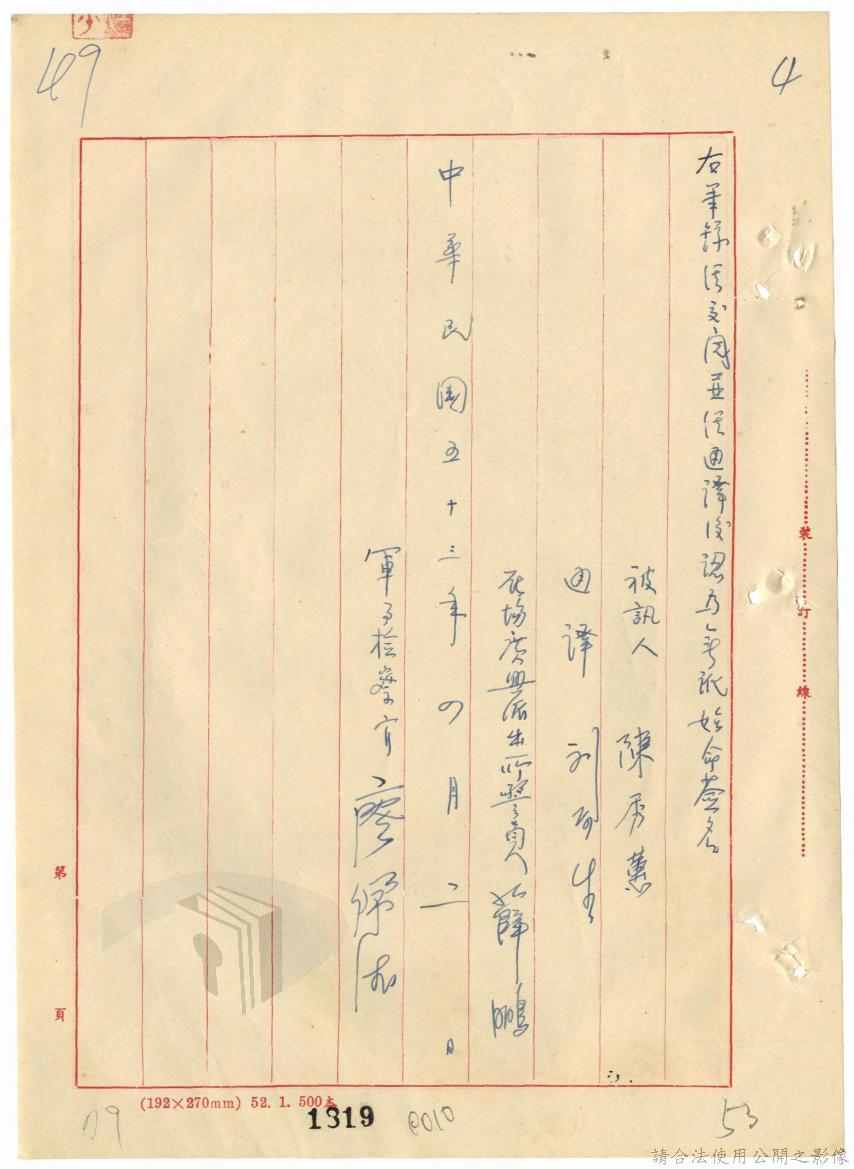 49
4
右筆錄經交閱並經通譯後認為無訛始命簽名
被訊人 陳秀蕙
通譯 利生
在場廣興派出所警員 薛鵬
中華民國五十三年四月二日
軍事檢察官 廖
裝訂線
第 頁
(192×270mm) 52. 1. 500本
1319
0010
53
請合法使用公開之影像